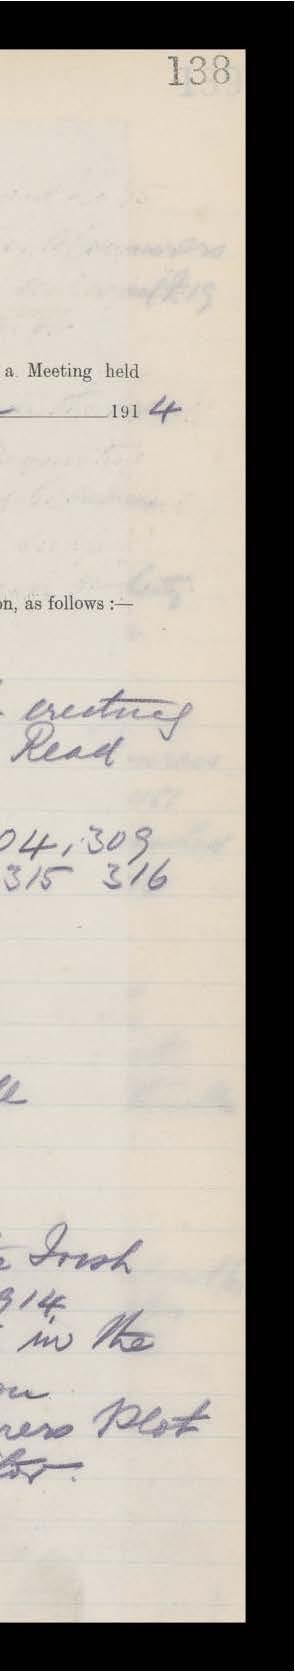 138
a Meeting held
191 4
on, as follows :—
erecting
Read
04, 309
315 316
Irish
914
in the
Plot